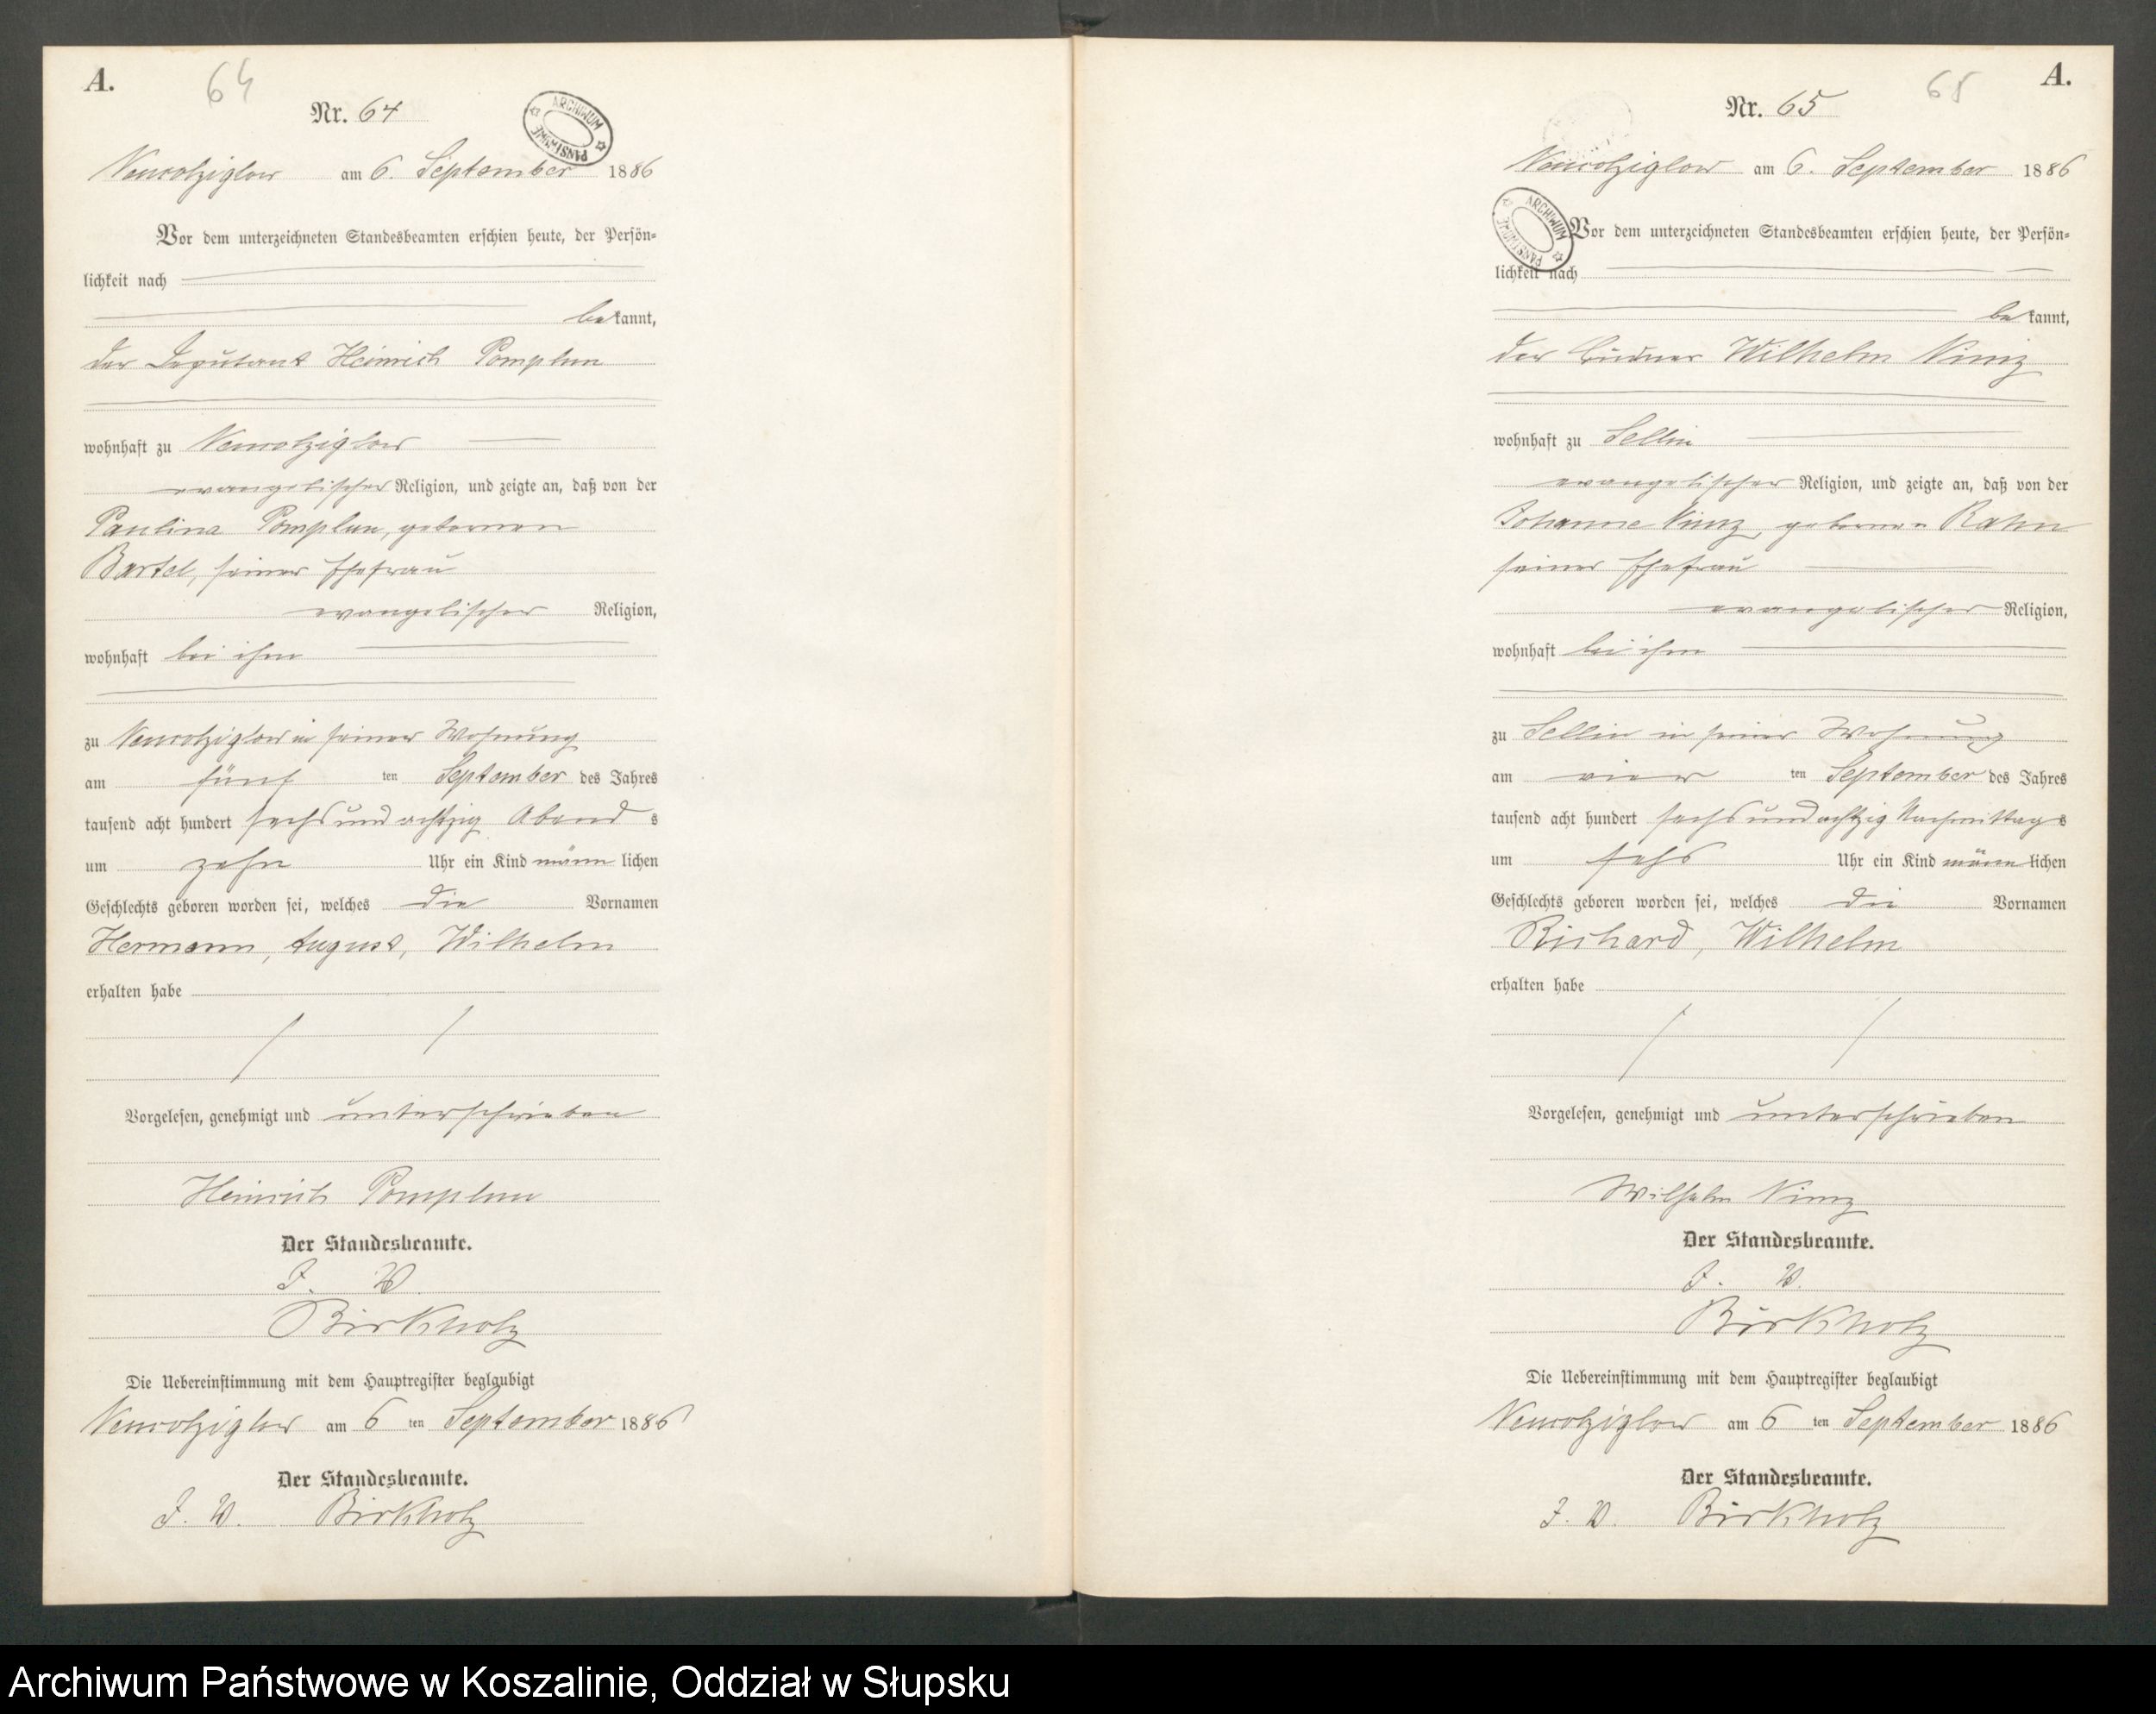 A.
64
Nr. 64
ARCHIWUM PAŃSTWOWE
Neurolziglow am 6. September 1886
Vor dem unterzeichneten Standesbeamten erschien heute, der Persön-
lichkeit nach
bekannt,
der Deputant Heinrich Pomplun
wohnhaft zu Neukolziglow
evangelischer Religion, und zeigte an, daß von der
Paulina Pomplun, geborenen
Bartel, seiner Ehefrau
evangelischer Religion,
wohnhaft bei ihm
zu Neukolziglow in seiner Wohnung
am fünf ten September des Jahres
tausend acht hundert sechs und achtzig Abends
um zehn Uhr ein Kind männlichen
Geschlechts geboren worden sei, welches die Vornamen
Hermann, August, Wilhelm
erhalten habe
Vorgelesen, genehmigt und unterschrieben
Heinrich Pomplun
Der Standesbeamte.
J. V.
Birkholz
Die Uebereinstimmung mit dem Hauptregister beglaubigt
Neukolziglow am 6 ten September 1886
Der Standesbeamte.
J. V. Birkholz
A.
65
Nr. 65
Neukolziglow am 6. September 1886
ARCHIWUM PAŃSTWOWE
Vor dem unterzeichneten Standesbeamten erschien heute, der Persön-
lichkeit nach
bekannt,
der Büdner Wilhelm Nimz
wohnhaft zu Sellin
evangelischer Religion, und zeigte an, daß von der
Johanne Nimz, geborenen Rahn
seiner Ehefrau
evangelischer Religion,
wohnhaft bei ihm
zu Sellin in seiner Wohnung
am vier ten September des Jahres
tausend acht hundert sechs und achtzig Nachmittags
um sechs Uhr ein Kind männlichen
Geschlechts geboren worden sei, welches die Vornamen
Richard, Wilhelm
erhalten habe
Vorgelesen, genehmigt und unterschrieben
Wilhelm Nimz
Der Standesbeamte.
J. V.
Birkholz
Die Uebereinstimmung mit dem Hauptregister beglaubigt
Neukolziglow am 6 ten September 1886
Der Standesbeamte.
J. V. Birkholz
Archiwum Państwowe w Koszalinie, Oddział w Słupsku